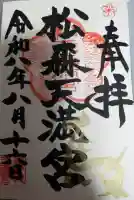 奉拝
松森天満宮
令和八年八月十六日